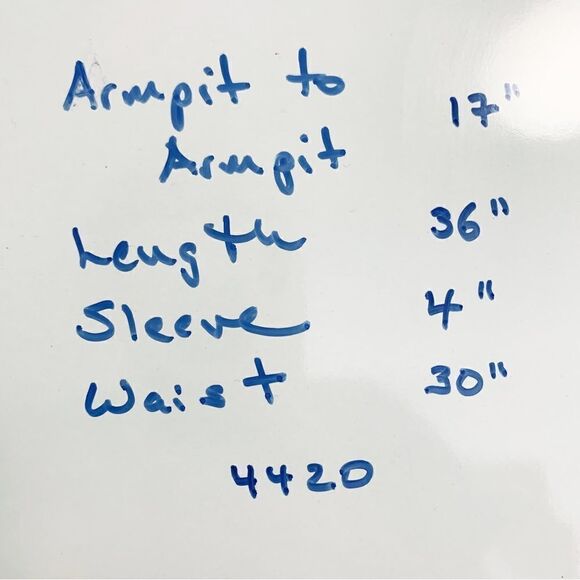 Armpit to
Armpit 17"
Length 36"
Sleeve 4"
Waist 30"
4420